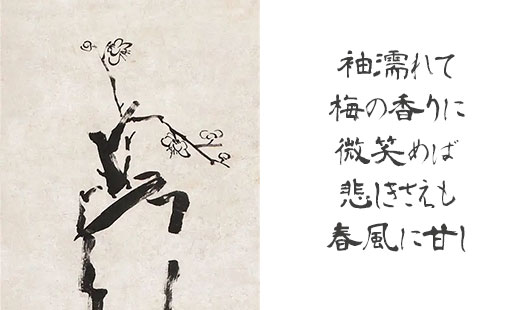 袖濡れて
梅の香りに
微笑めば
悲しきさえも
春風に甘し